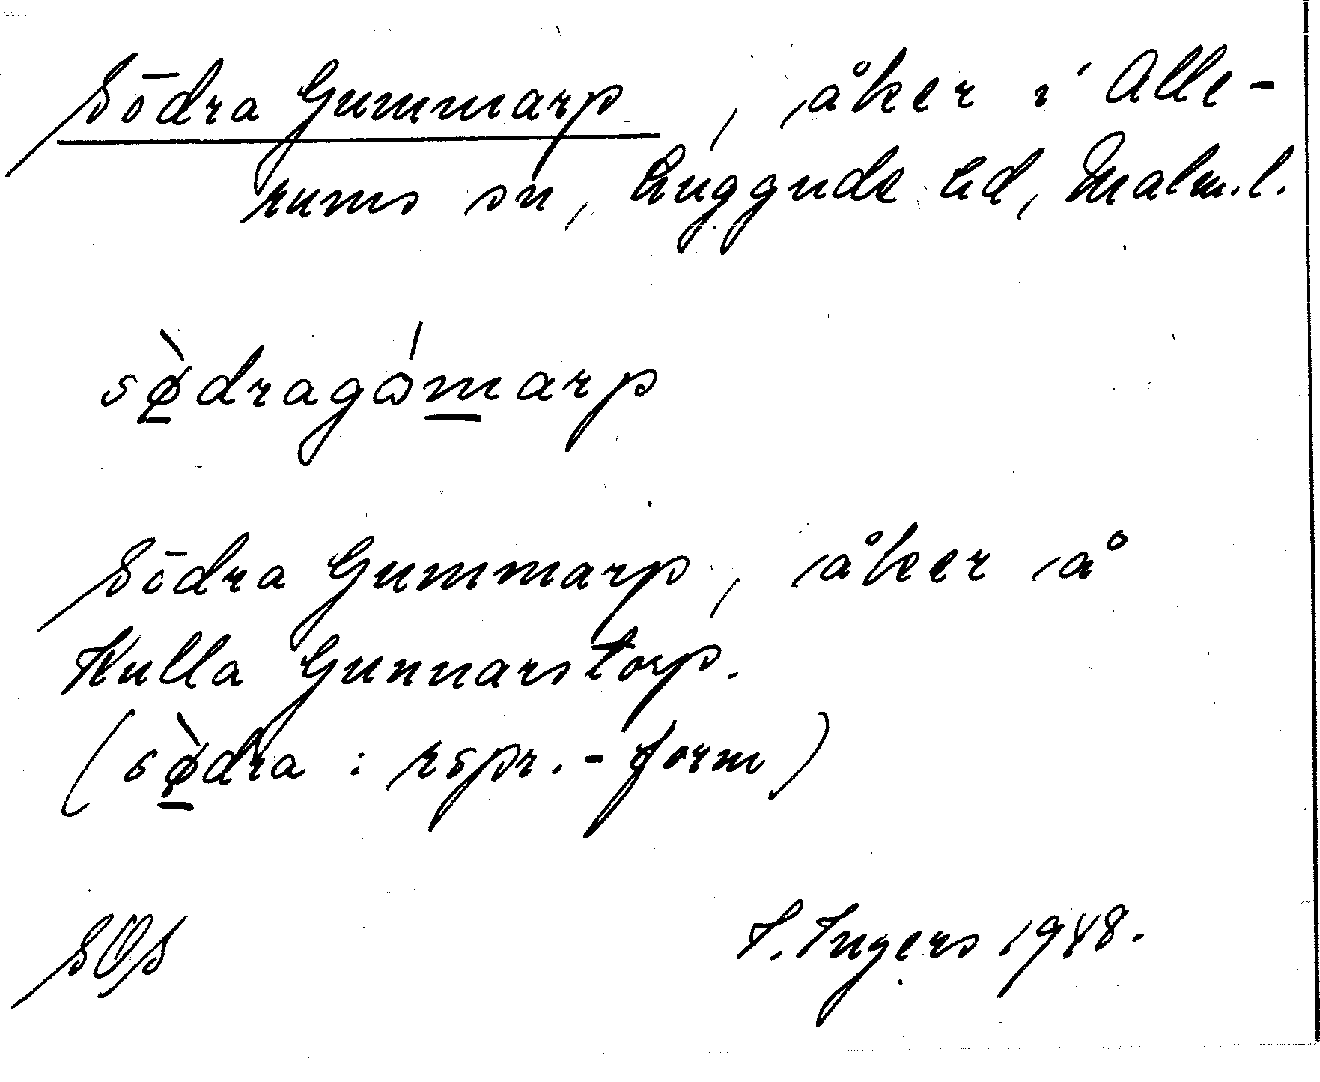 Södra Gummarp, åker i Alle-
rums sn, Luggude hd, Malm.l.
sø̱̀dragɷ́m̱arp
Södra Gummarp, åker å
Kulla Gunnarstorp.
(sø̱̀dra : rspr.-form)
SOS
I. Ingers 1948.